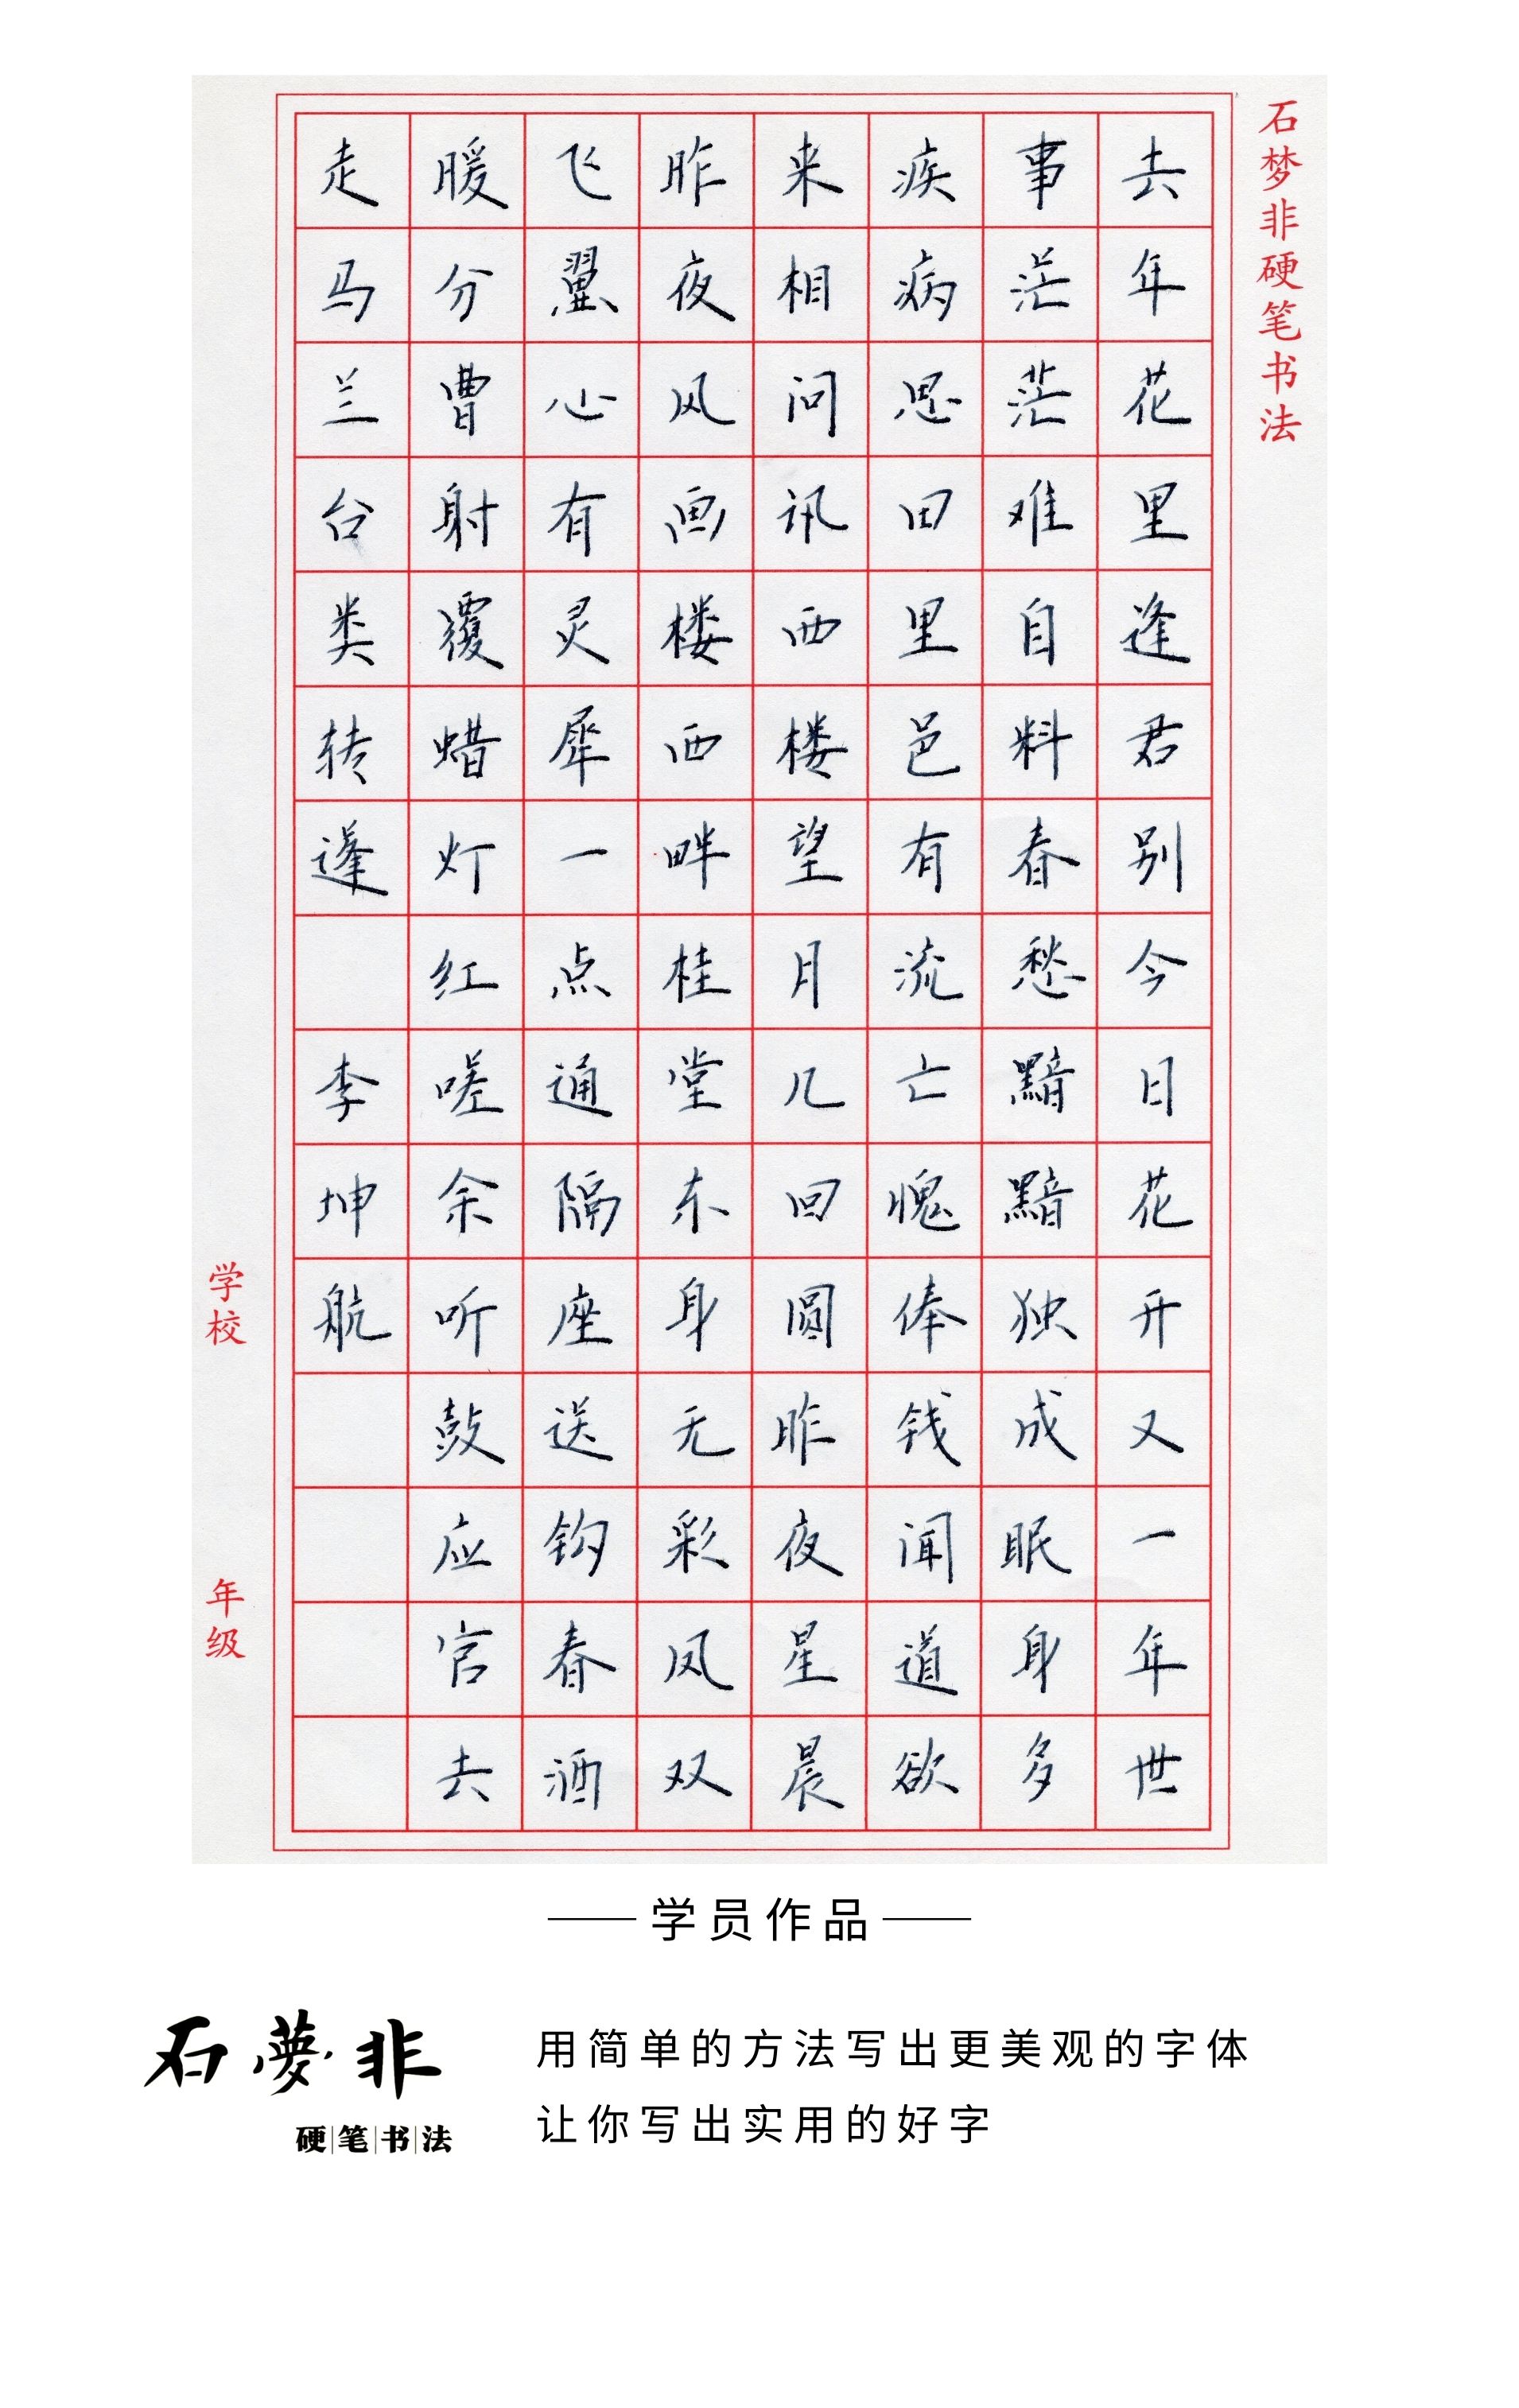 石梦非硬笔书法
去年花里逢君别今日花开又一年世
事茫茫难自料春愁黯黯独成眠身多
疾病思田里邑有流亡愧俸钱闻道欲
来相问讯西楼望月几回圆昨夜星晨
昨夜风画楼西畔桂堂东身无彩凤双
飞翼心有灵犀一点通隔座送钩春酒
暖分曹射覆蜡灯红嗟余听鼓应官去
走马兰台类转蓬 李坤航
学校
年级
学员作品
石夢非
硬笔书法
用简单的方法写出更美观的字体
让你写出实用的好字